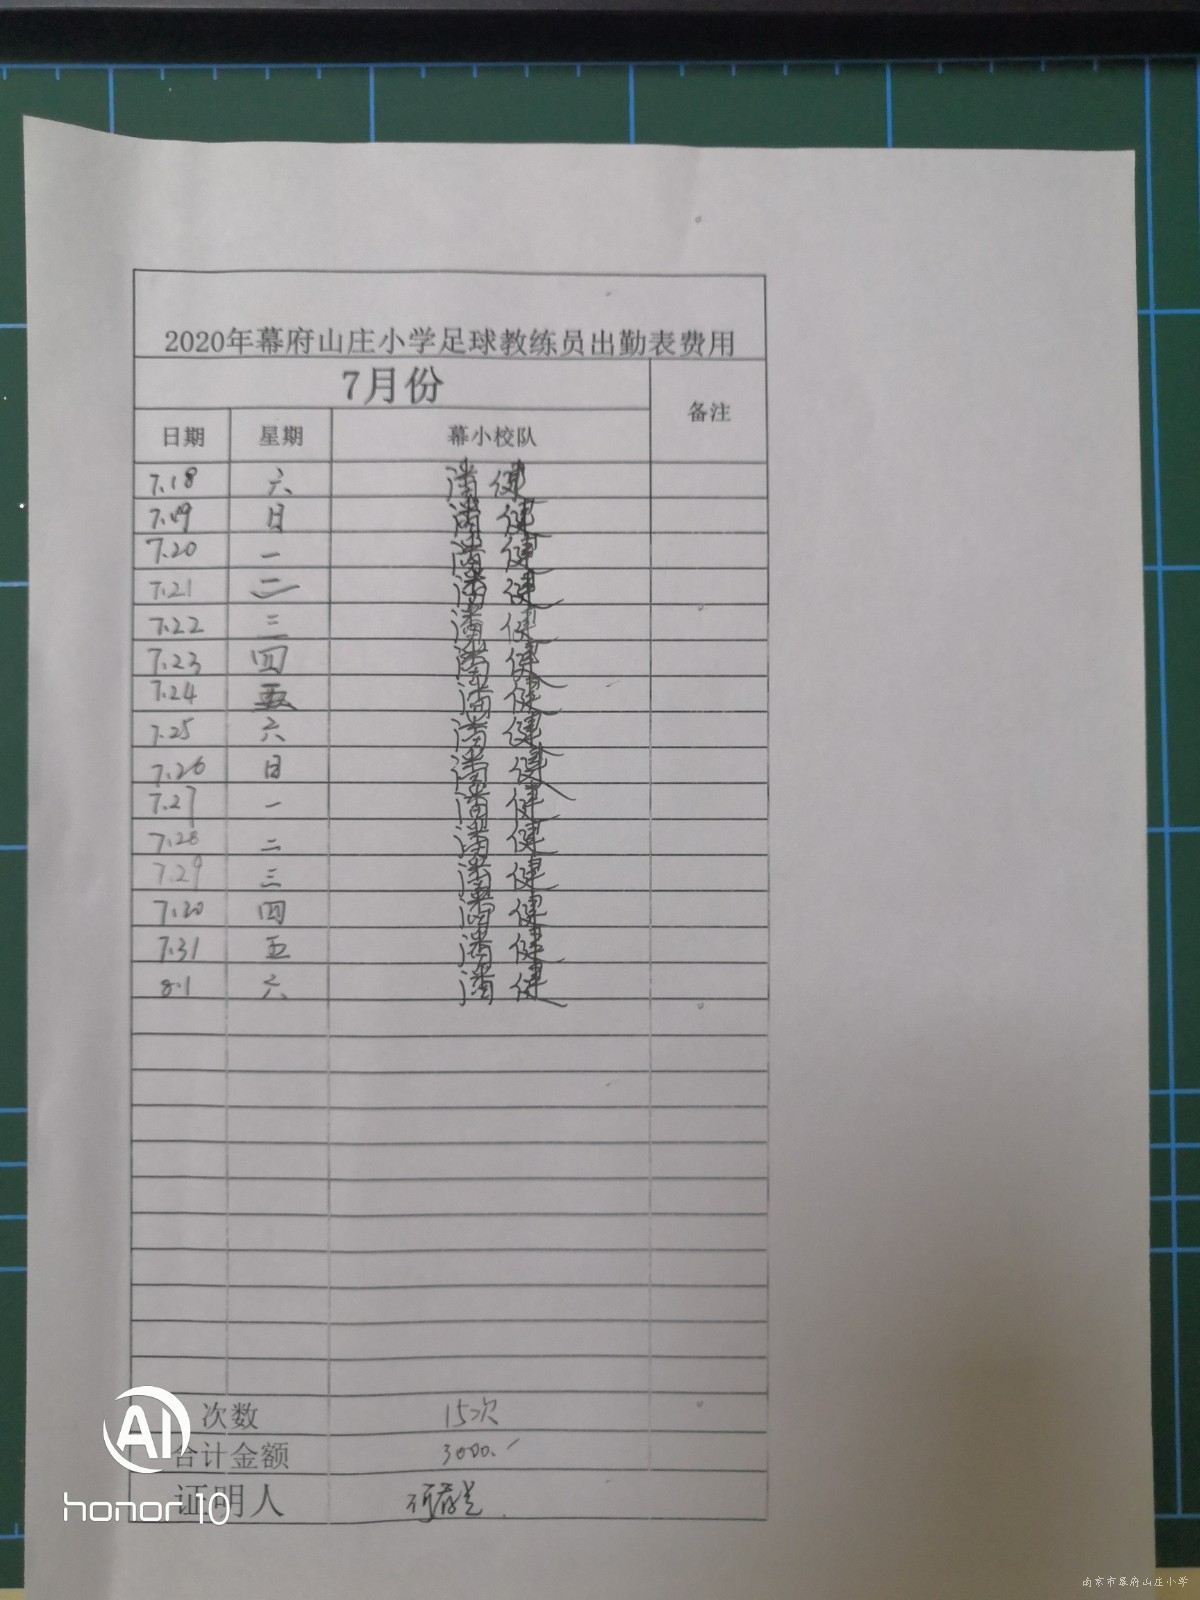 2020年幕府山庄小学足球教练员出勤表费用
7月份 备注
日期 星期 幕小校队
7.18 六 潘健
7.19 日 潘健
7.20 一 潘健
7.21 二 潘健
7.22 三 潘健
7.23 四 潘健
7.24 五 潘健
7.25 六 潘健
7.26 日 潘健
7.27 一 潘健
7.28 二 潘健
7.29 三 潘健
7.30 四 潘健
7.31 五 潘健
8.1 六 潘健
次数 15次
合计金额 3000.-
证明人
AI
honor 10
南京市幕府山庄小学